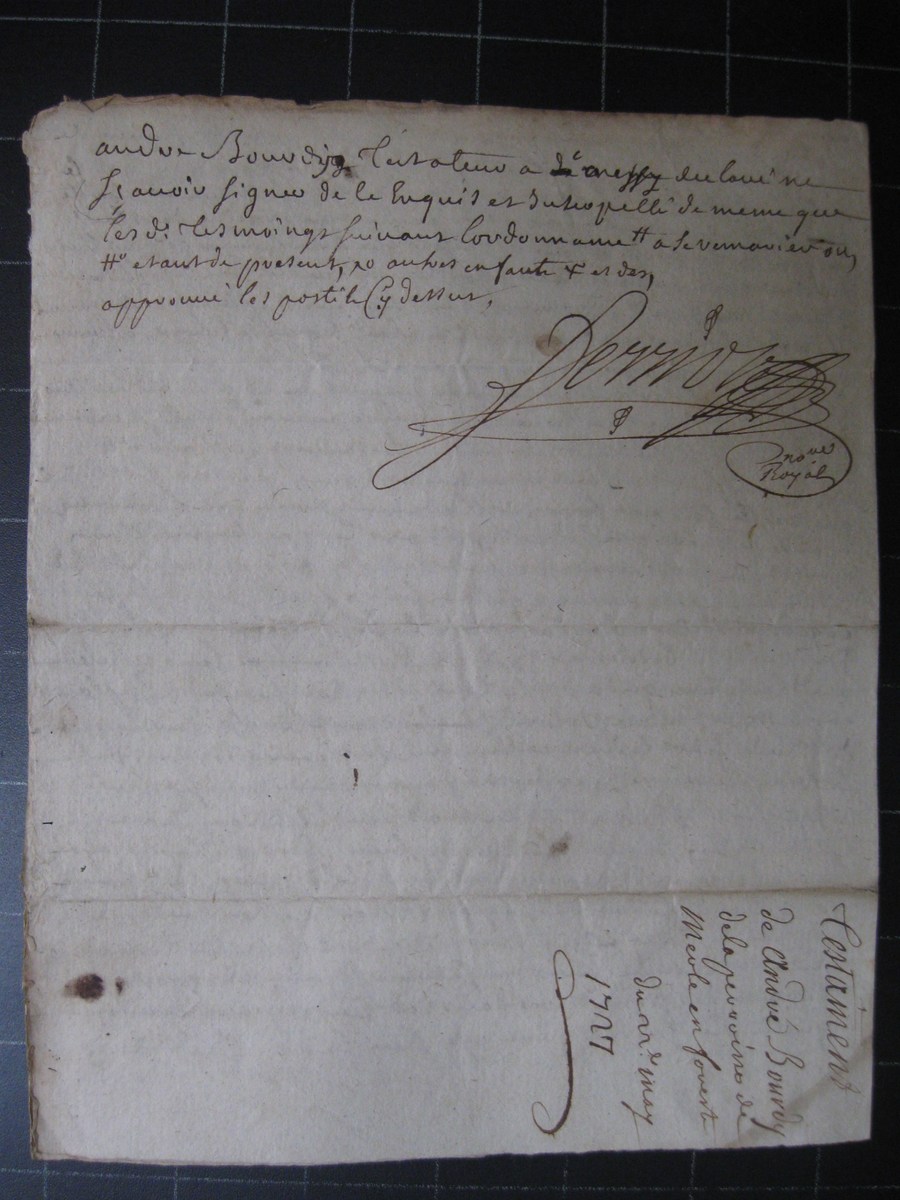 andre Bourdy Testateur a declaré ne
sçavoir signer de le Enquis et Interpellé de meme que
les d. tesmoingt suivant lordonnance
et aut de present, autres enfants et des,
approuvé les postil Cy dessus,
Perrion
nore
Royal
Testaiment
de andré Bourdy
de la perroisse de
Merle en forest
du may
1727